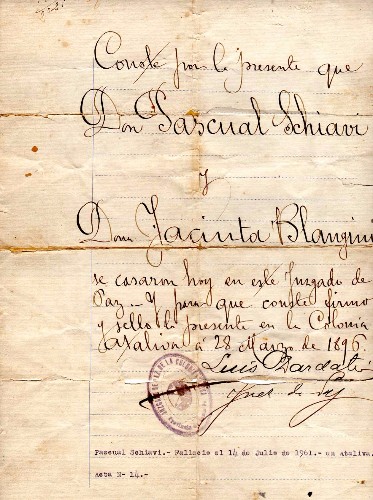 Conste por la presente que
Don Pascual Schiavi
y
Doña Jacinta Blangini
se casaron hoy en este Juzgado de
Paz - Y para que conste firmo
y sello la presente en la Colonia
Ataliva á 28 Marzo de 1896
Luis
Juez de
Pascual Schiavi.- Fallecio el 14 de Julio de 1961.- en Ataliva.
Acta N- 14.-